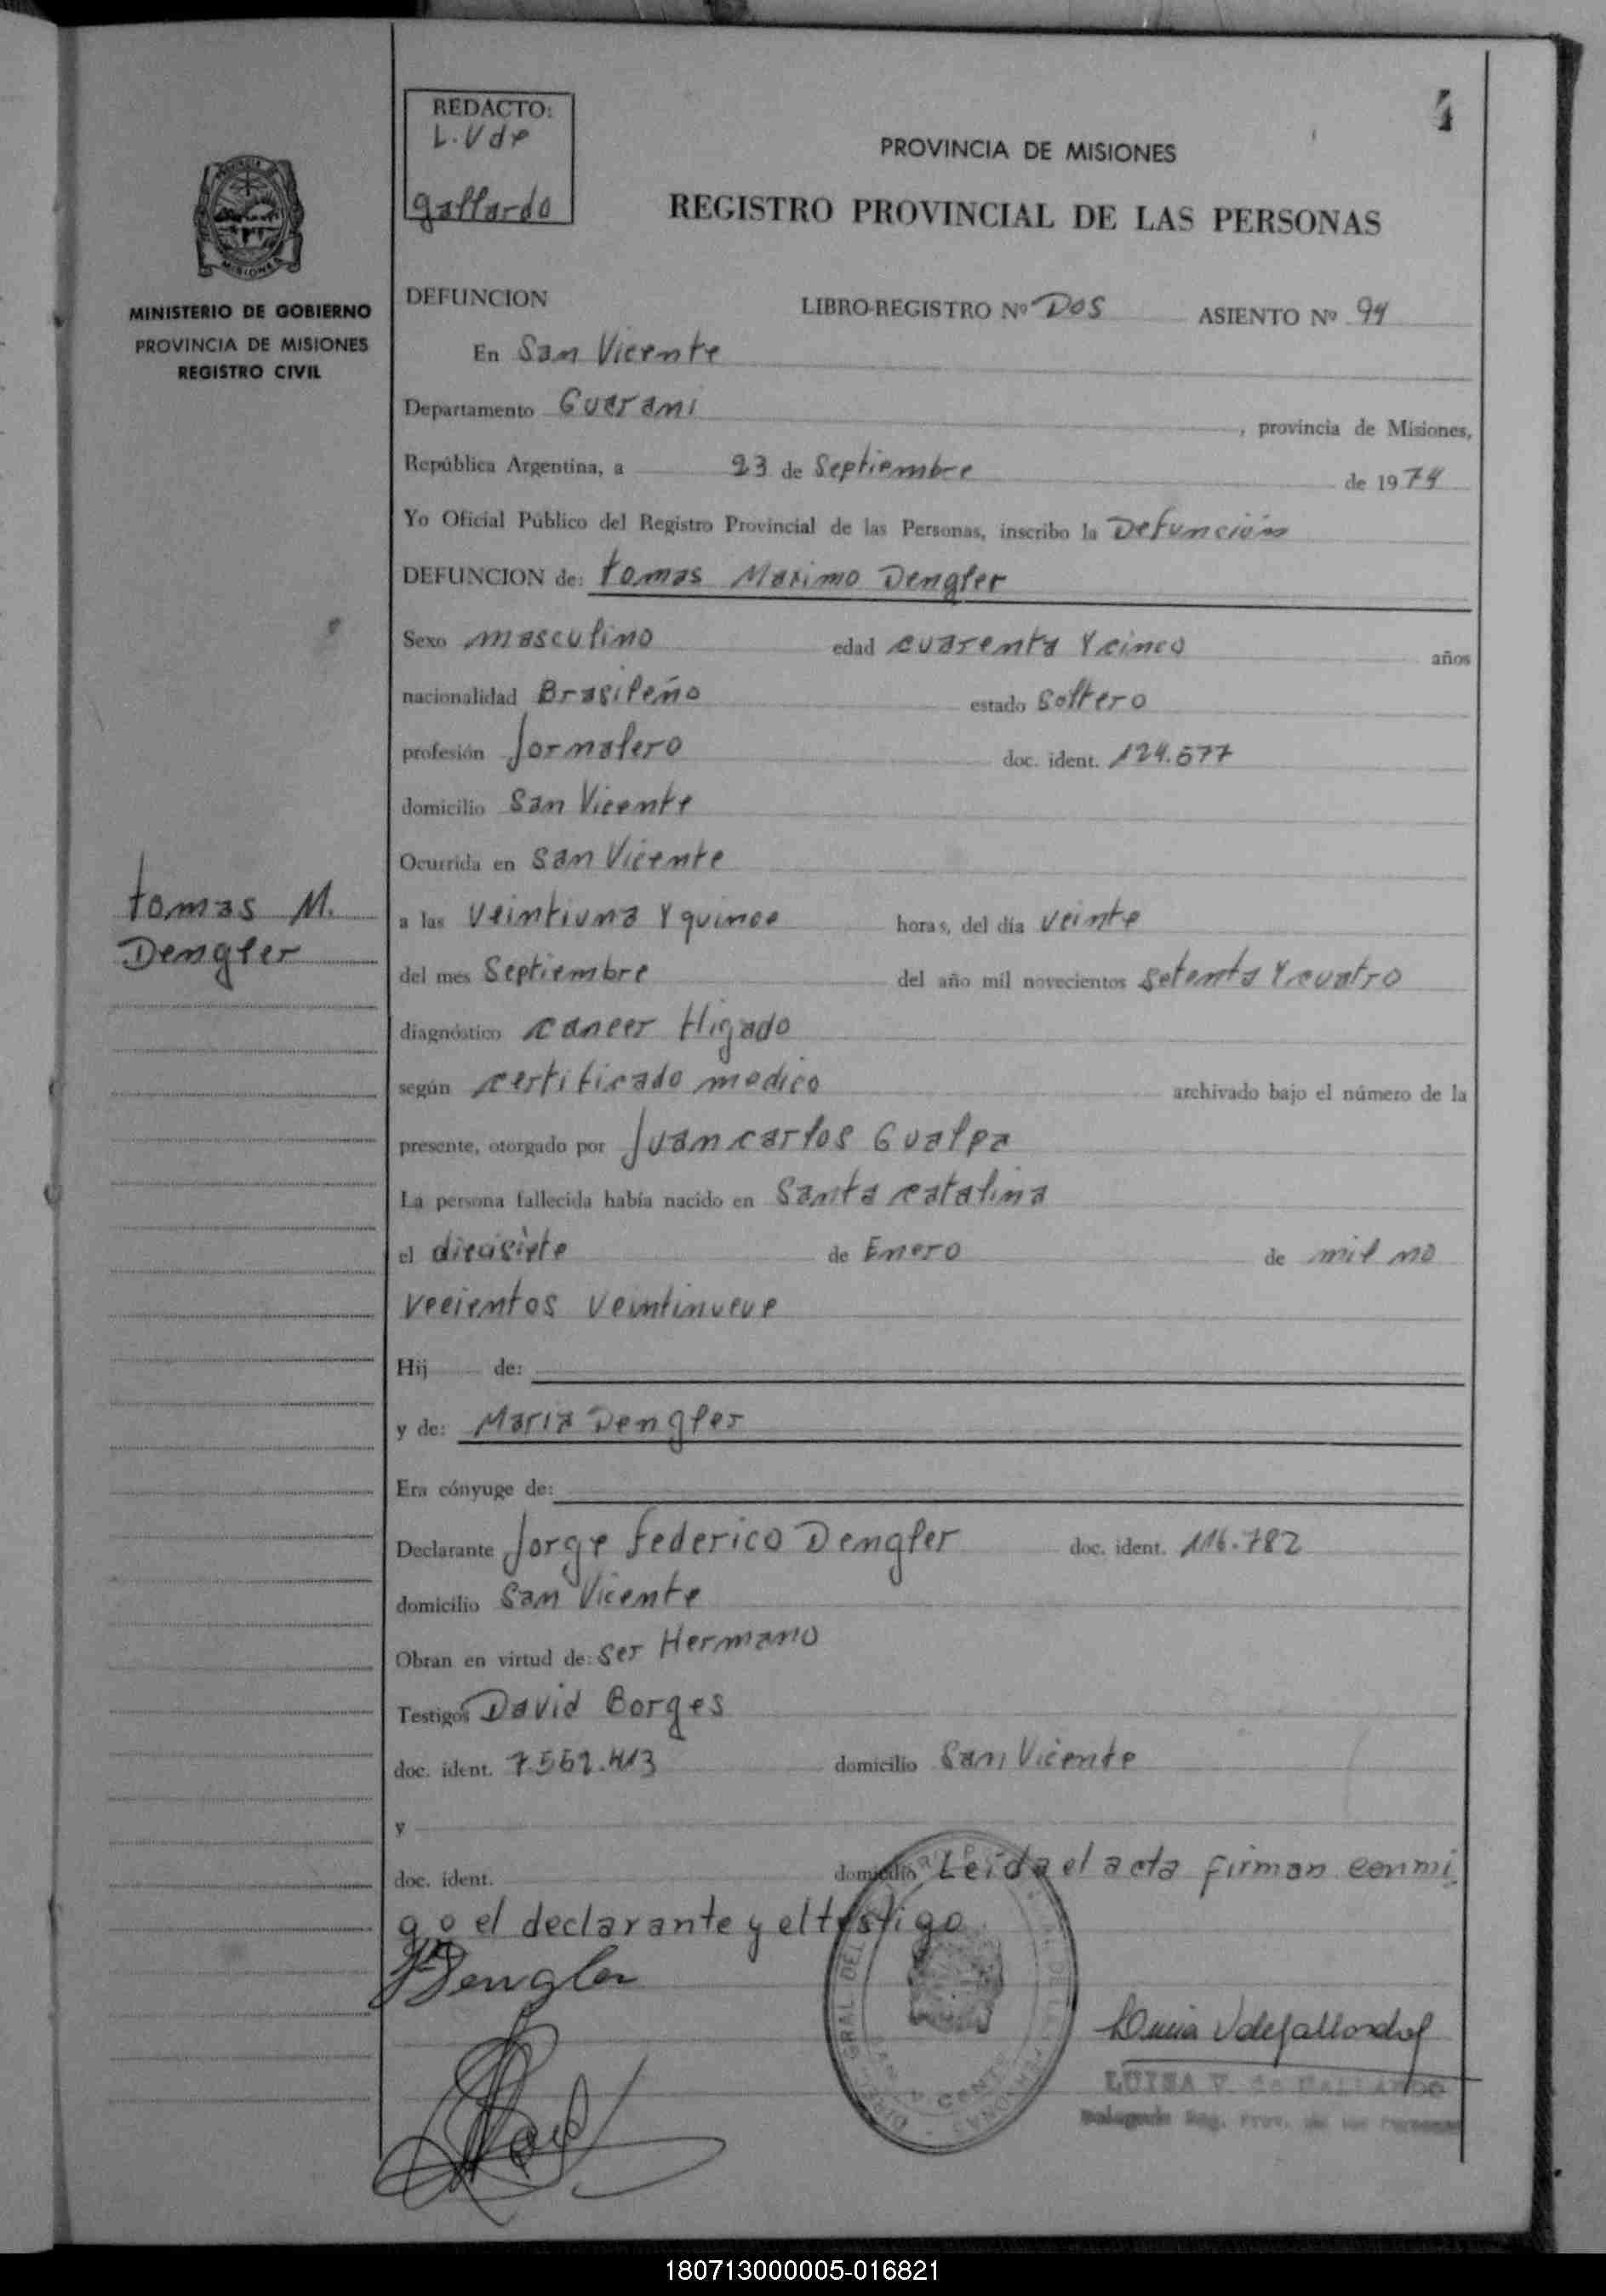 REDACTO:
L. V de
gallardo
4
PROVINCIA DE MISIONES
REGISTRO PROVINCIAL DE LAS PERSONAS
MISIONES
MINISTERIO DE GOBIERNO
PROVINCIA DE MISIONES
REGISTRO CIVIL
DEFUNCION LIBRO-REGISTRO Nº Dos ASIENTO Nº 94
En San Vicente
Departamento Guarani, provincia de Misiones,
República Argentina, a 23 de Septiembre de 1974
Yo Oficial Público del Registro Provincial de las Personas, inscribo la Defunción
DEFUNCION de: tomas Maximo Dengler
Sexo masculino edad cuarenta y cinco años
nacionalidad Brasileño estado Soltero
profesión Jornalero doc. ident. 124.577
domicilio San Vicente
Ocurrida en San Vicente
tomas M.
Dengler
a las veintiuna y quince horas, del día veinte
del mes Septiembre del año mil novecientos setenta y cuatro
diagnóstico cancer Higado
según certificado medico archivado bajo el número de la
presente, otorgado por Juan carlos Gualpa
La persona fallecida había nacido en Santa catalina
el diecisiete de Enero de mil no
vecientos veintinueve
Hij de:
y de: Maria Dengler
Era cónyuge de:
Declarante Jorge Federico Dengler doc. ident. 116.782
domicilio San Vicente
Obran en virtud de: Ser Hermano
Testigos David Borges
doc. ident. 7.562.413 domicilio San Vicente
y
doc. ident. domicilio Leida el acta firman conmi
go el declarante y el testigo.
Dengler
LUISA V. de GALLARDO
Delegada Reg. Prov. de las Personas
180713000005-016821